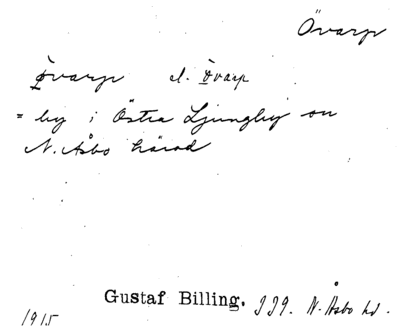 Övarp
Òvarp el. Òvarp
= by i Östra Ljungby sn
N. Åsbo härad
Gustaf Billing. 339. N. Åsbo hd.
1915